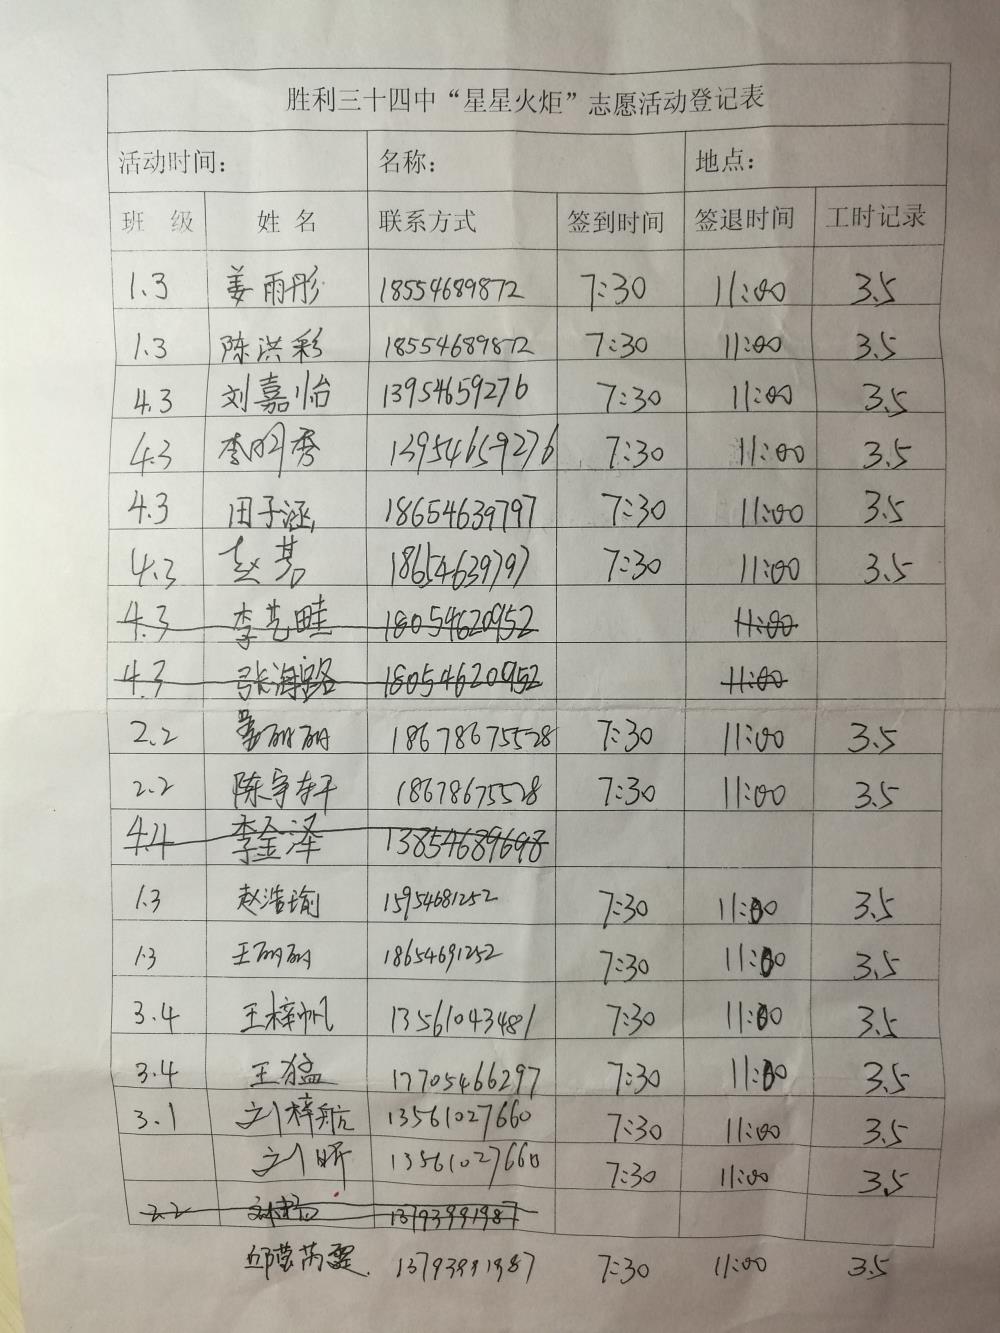 胜利三十四中“星星火炬”志愿活动登记表
活动时间： 名称： 地点：
班 级 姓 名 联系方式 签到时间 签退时间 工时记录
1.3 姜雨彤 18554689872 7:30 11:00 3.5
1.3 陈洪彩 18554689872 7:30 11:00 3.5
4.3 刘嘉怡 13954659276 7:30 11:00 3.5
4.3 李明秀 13954659276 7:30 11:00 3.5
4.3 田子涵 18654639797 7:30 11:00 3.5
4.3 赵 18654639797 7:30 11:00 3.5
4.3 李艺畦 18054620952 11:00
4.3 张海路 18054620952 11:00
2.2 丽丽 18678675528 7:30 11:00 3.5
2.2 陈宇轩 18678675528 7:30 11:00 3.5
4.4 李金泽 13854689698
1.3 赵浩瑜 15954681252 7:30 11:00 3.5
1.3 王丽丽 18654691252 7:30 11:00 3.5
3.4 王梓帆 13561043481 7:30 11:00 3.5
3.4 王猛 17705466297 7:30 11:00 3.5
3.1 刘梓航 13561027660 7:30 11:00 3.5
刘昕 13561027660 7:30 11:00 3.5
2.2 13793991987
邱莹 13793991987 7:30 11:00 3.5